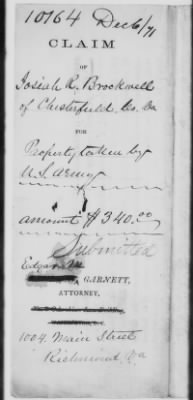 10764 Dec 6/71
CLAIM
OF
Josiah R. Brockwell
of Chesterfield, Co. Va
FOR
Property taken by
U.S. army
amount $340.00
Submitted
Edgar M
GARNETT,
ATTORNEY,
1004 Main Street
Richmond, Va